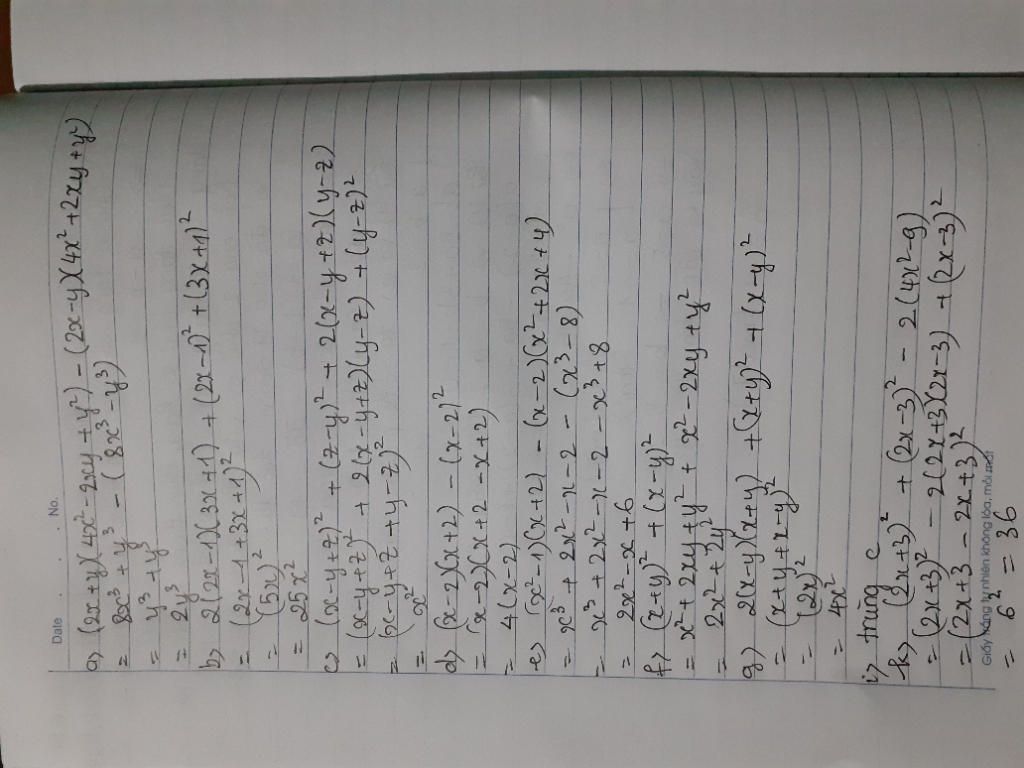 Date . . . No.
a) (2x+y)(4x²-2xy+y²) - (2x-y)(4x²+2xy+y²)
= 8x³+y³ - (8x³-y³)
= y³+y³
= 2y³
b) 2(2x-1)(3x+1) + (2x-1)² + (3x+1)²
= (2x-1+3x+1)²
= (5x)²
= 25x²
c) (x-y+z)² + (z-y)² + 2(x-y+z)(y-z)
= (x-y+z)² + 2(x-y+z)(y-z) + (y-z)²
= (x-y+z+y-z)²
= x²
d) (x-2)(x+2) - (x-2)²
= (x-2)(x+2-x+2)
= 4(x-2)
e) (x²-1)(x+2) - (x-2)(x²+2x+4)
= x³+2x²-x-2 - (x³-8)
= x³+2x²-x-2-x³+8
= 2x²-x+6
f) (x+y)² + (x-y)²
= x²+2xy+y² + x²-2xy+y²
= 2x²+2y²
g) 2(x-y)(x+y) + (x+y)² + (x-y)²
= (x+y+x-y)²
= (2x)²
= 4x²
i) trùng c
k) (2x+3)² + (2x-3)² - 2(4x²-9)
= (2x+3)² - 2(2x+3)(2x-3) + (2x-3)²
= (2x+3-2x+3)²
Giấy trắng tự nhiên không lóa, mỏi mắt
= 6² = 36